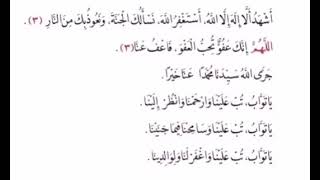 أَشْهَدُ أَنْ لَّا إِلٰهَ إِلَّا اللهُ، أَسْتَغْفِرُ اللهَ، نَسْأَلُكَ الْجَنَّةَ، وَنَعُوذُ بِكَ مِنَ النَّارِ (٣).
اَللّٰهُمَّ إِنَّكَ عَفُوٌّ تُحِبُّ الْعَفْوَ، فَاعْفُ عَنَّا (٣).
جَزَى اللهُ سَيِّدَنَا مُحَمَّدًا عَنَّا خَيْرًا.
يَا تَوَّابُ، تُبْ عَلَيْنَا وَارْحَمْنَا وَانْظُرْ إِلَيْنَا.
يَا تَوَّابُ، تُبْ عَلَيْنَا وَسَامِحْنَا فِيمَا جَنَيْنَا.
يَا تَوَّابُ، تُبْ عَلَيْنَا وَاغْفِرْ لَنَا وَلِوَالِدِينَا.